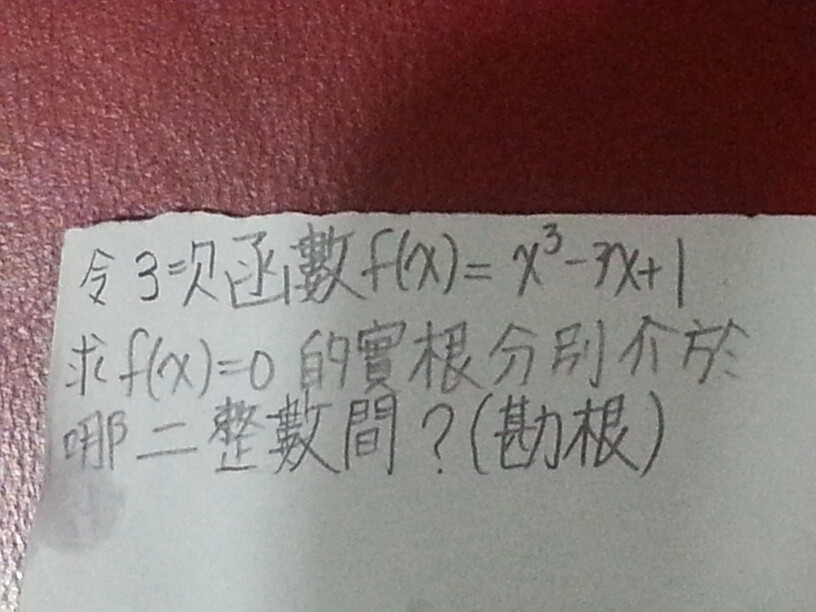 令3次函數f(x)=x³-3x+1
求f(x)=0的實根分別介於
哪二整數間?(勘根)